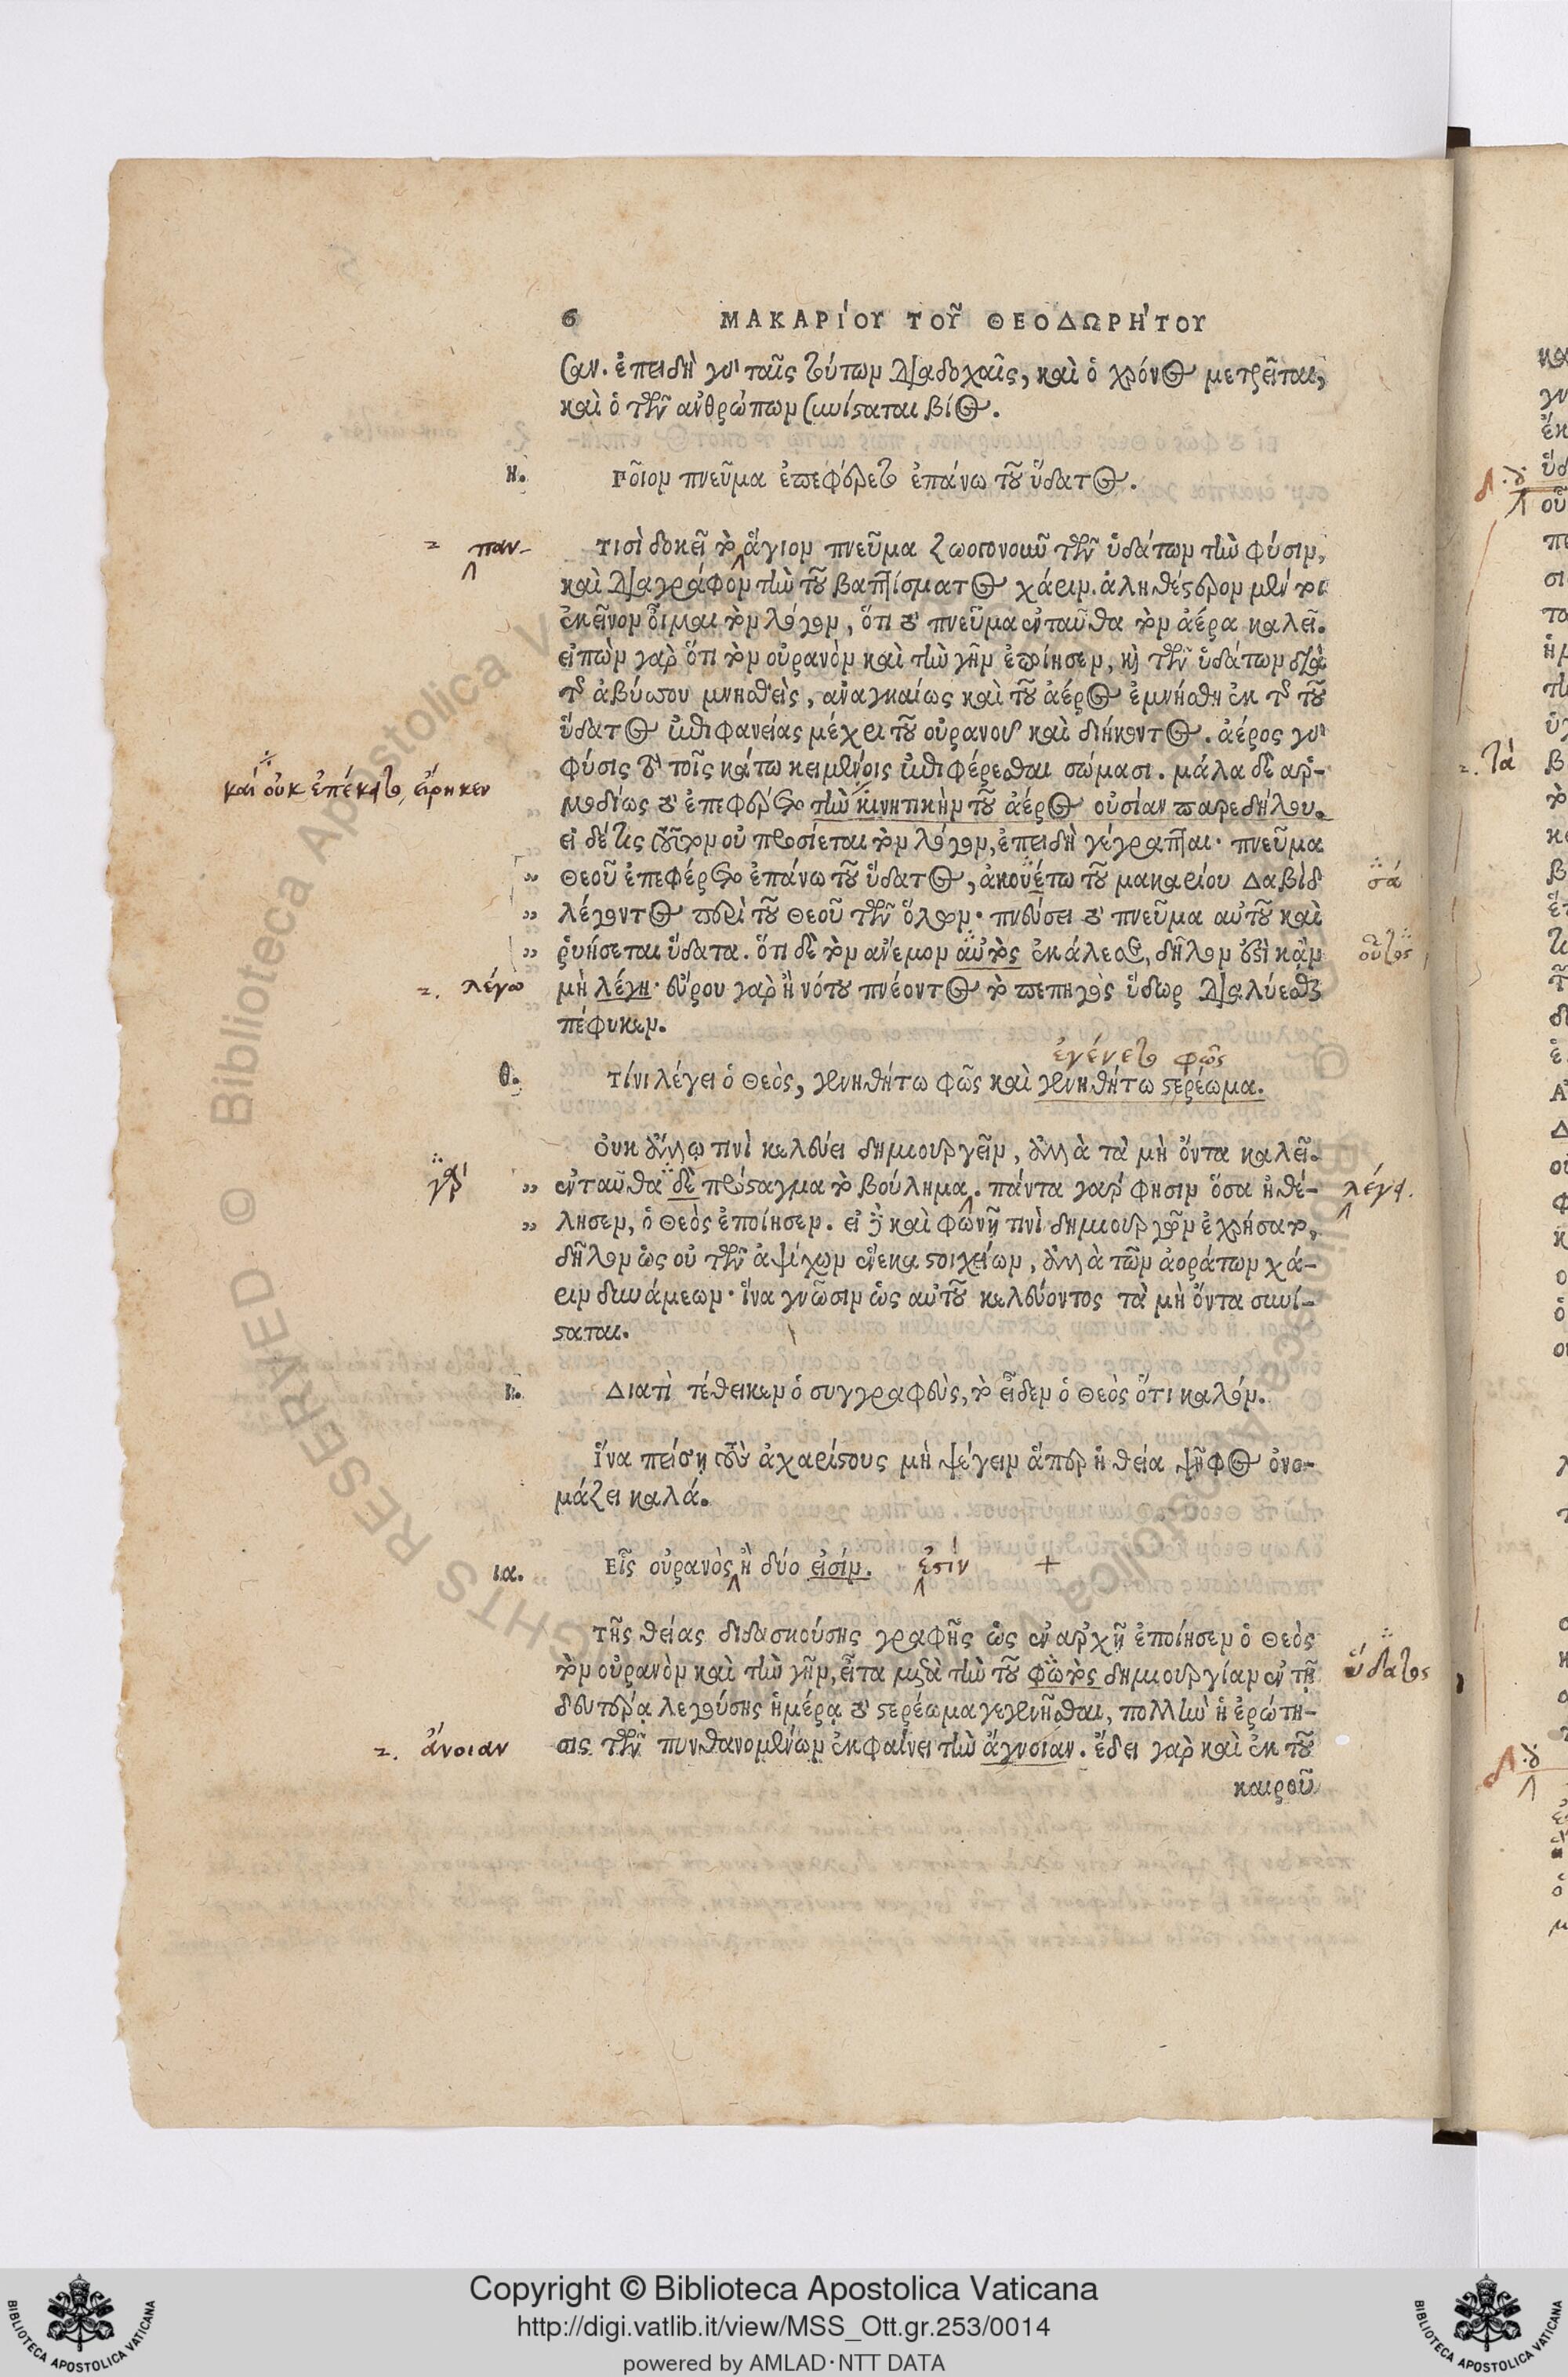 6 ΜΑΚΑΡΙ΄ΟΥ ΤΟΥ͂ ΘΕΟΔΩΡΗ΄ΤΟΥ
σαν. ἐπειδὴ γὰρ ταῖς τούτων διαδοχαῖς, καὶ ὁ χρόνος μετρεῖται,
καὶ ὁ τῶν ἀνθρώπων συνίσταται βίος.
η. Ποῖον πνεῦμα ἐπεφέρετο ἐπάνω τοῦ ὕδατος.
παν- τισὶ δοκεῖ τὸ ἅγιον πνεῦμα ζωογονοῦν τῶν ὑδάτων τὴν φύσιν,
καὶ διαγράφον τὴν τοῦ βαπτίσματος χάριν. ἀληθέστερον μέντοι
ἐκεῖνον οἶμαι τὸν λόγον, ὅτι τὸ πνεῦμα ἐνταῦθα τὸν ἀέρα καλεῖ.
εἰπὼν γὰρ ὅτι τὸν οὐρανὸν καὶ τὴν γῆν ἐποίησεν, καὶ τῶν ὑδάτων διὰ
τῆς ἀβύσσου μνησθεὶς, ἀναγκαίως καὶ τοῦ ἀέρος ἐμνήσθη ἐκ τῆς τοῦ
ὕδατος ἐπιφανείας μέχρι τοῦ οὐρανοῦ καὶ διήκοντος. ἀέρος γὰρ
φύσις τὸ τοῖς κάτω κειμένοις ἐπιφέρεσθαι σώμασι. μάλα δὲ ἁρ-
καί οὐκ ἐπέκειτο, εἴρηκεν
μοδίως τὸ ἐπεφέρετο τὴν κινητικὴν τοῦ ἀέρος οὐσίαν παρεδήλου.
εἰ δέ τις τοῦτον οὐ προσίεται τὸν λόγον, ἐπειδὴ γέγραπται· πνεῦμα
„ Θεοῦ ἐπεφέρετο ἐπάνω τοῦ ὕδατος, ἀκουέτω τοῦ μακαρίου Δαβὶδ σά
„ λέγοντος περὶ τοῦ Θεοῦ τῶν ὅλων· πνεύσει τὸ πνεῦμα αὐτοῦ καὶ
„ ῥυήσεται ὕδατα. ὅτι δὲ τὸν ἄνεμον αὐτὸς ἐκάλεσε, δῆλον ἐστὶ κἂν οὕτος
λέγω μὴ λέγῃ· εὔρου γὰρ ἢ νότου πνέοντος τὸ πεπηγὸς ὕδωρ διαλύεσθαι
πέφυκεν.
ἐγένετο φῶς
θ. Τίνι λέγει ὁ Θεὸς, γενηθήτω φῶς καὶ γενηθήτω στερέωμα.
Οὐκ ἄλλῳ τινὶ κελεύει δημιουργεῖν, ἀλλὰ τὰ μὴ ὄντα καλεῖ.
γάρ „ ἐνταῦθα δὲ πρόσταγμα τὸ βούλημα. πάντα γάρ φησιν ὅσα ἠθέ- λέγει.
„ λησεν, ὁ Θεὸς ἐποίησεν. εἰ δὲ καὶ φωνῇ τινὶ δημιουργῶν ἐχρήσατο,
δῆλον ὡς οὐ τῶν ἀψύχων ἕνεκα στοιχείων, ἀλλὰ τῶν ἀοράτων χά-
ριν δυνάμεων· ἵνα γνῶσιν ὡς αὐτοῦ κελεύοντος τὰ μὴ ὄντα συνί-
σταται.
ι. Διατὶ τέθεικεν ὁ συγγραφεὺς, τὸ εἶδεν ὁ Θεὸς ὅτι καλόν.
Ἵνα πείσῃ τοὺς ἀχαρίστους μὴ ψέγειν ἅπερ ἡ θεία ψῆφος ὀνο-
μάζει καλά.
ια. Εἷς οὐρανὸς ἢ δύο εἰσίν. ἐστίν +
Τῆς θείας διδασκούσης γραφῆς ὡς ἐν ἀρχῇ ἐποίησεν ὁ Θεὸς
τὸν οὐρανὸν καὶ τὴν γῆν, εἶτα μετὰ τὴν τοῦ φωτὸς δημιουργίαν ἐν τῇ ὕδατος
δευτέρᾳ λεγούσης ἡμέρᾳ τὸ στερέωμα γεγενῆσθαι, πολλὴν ἡ ἐρώτη-
ἄνοιαν σις τῶν πυνθανομένων ἐκφαίνει τὴν ἄγνοιαν. ἔδει γὰρ καὶ ἐκ τοῦ
καιροῦ
Copyright © Biblioteca Apostolica Vaticana
http://digi.vatlib.it/view/MSS_Ott.gr.253/0014
powered by AMLAD·NTT DATA